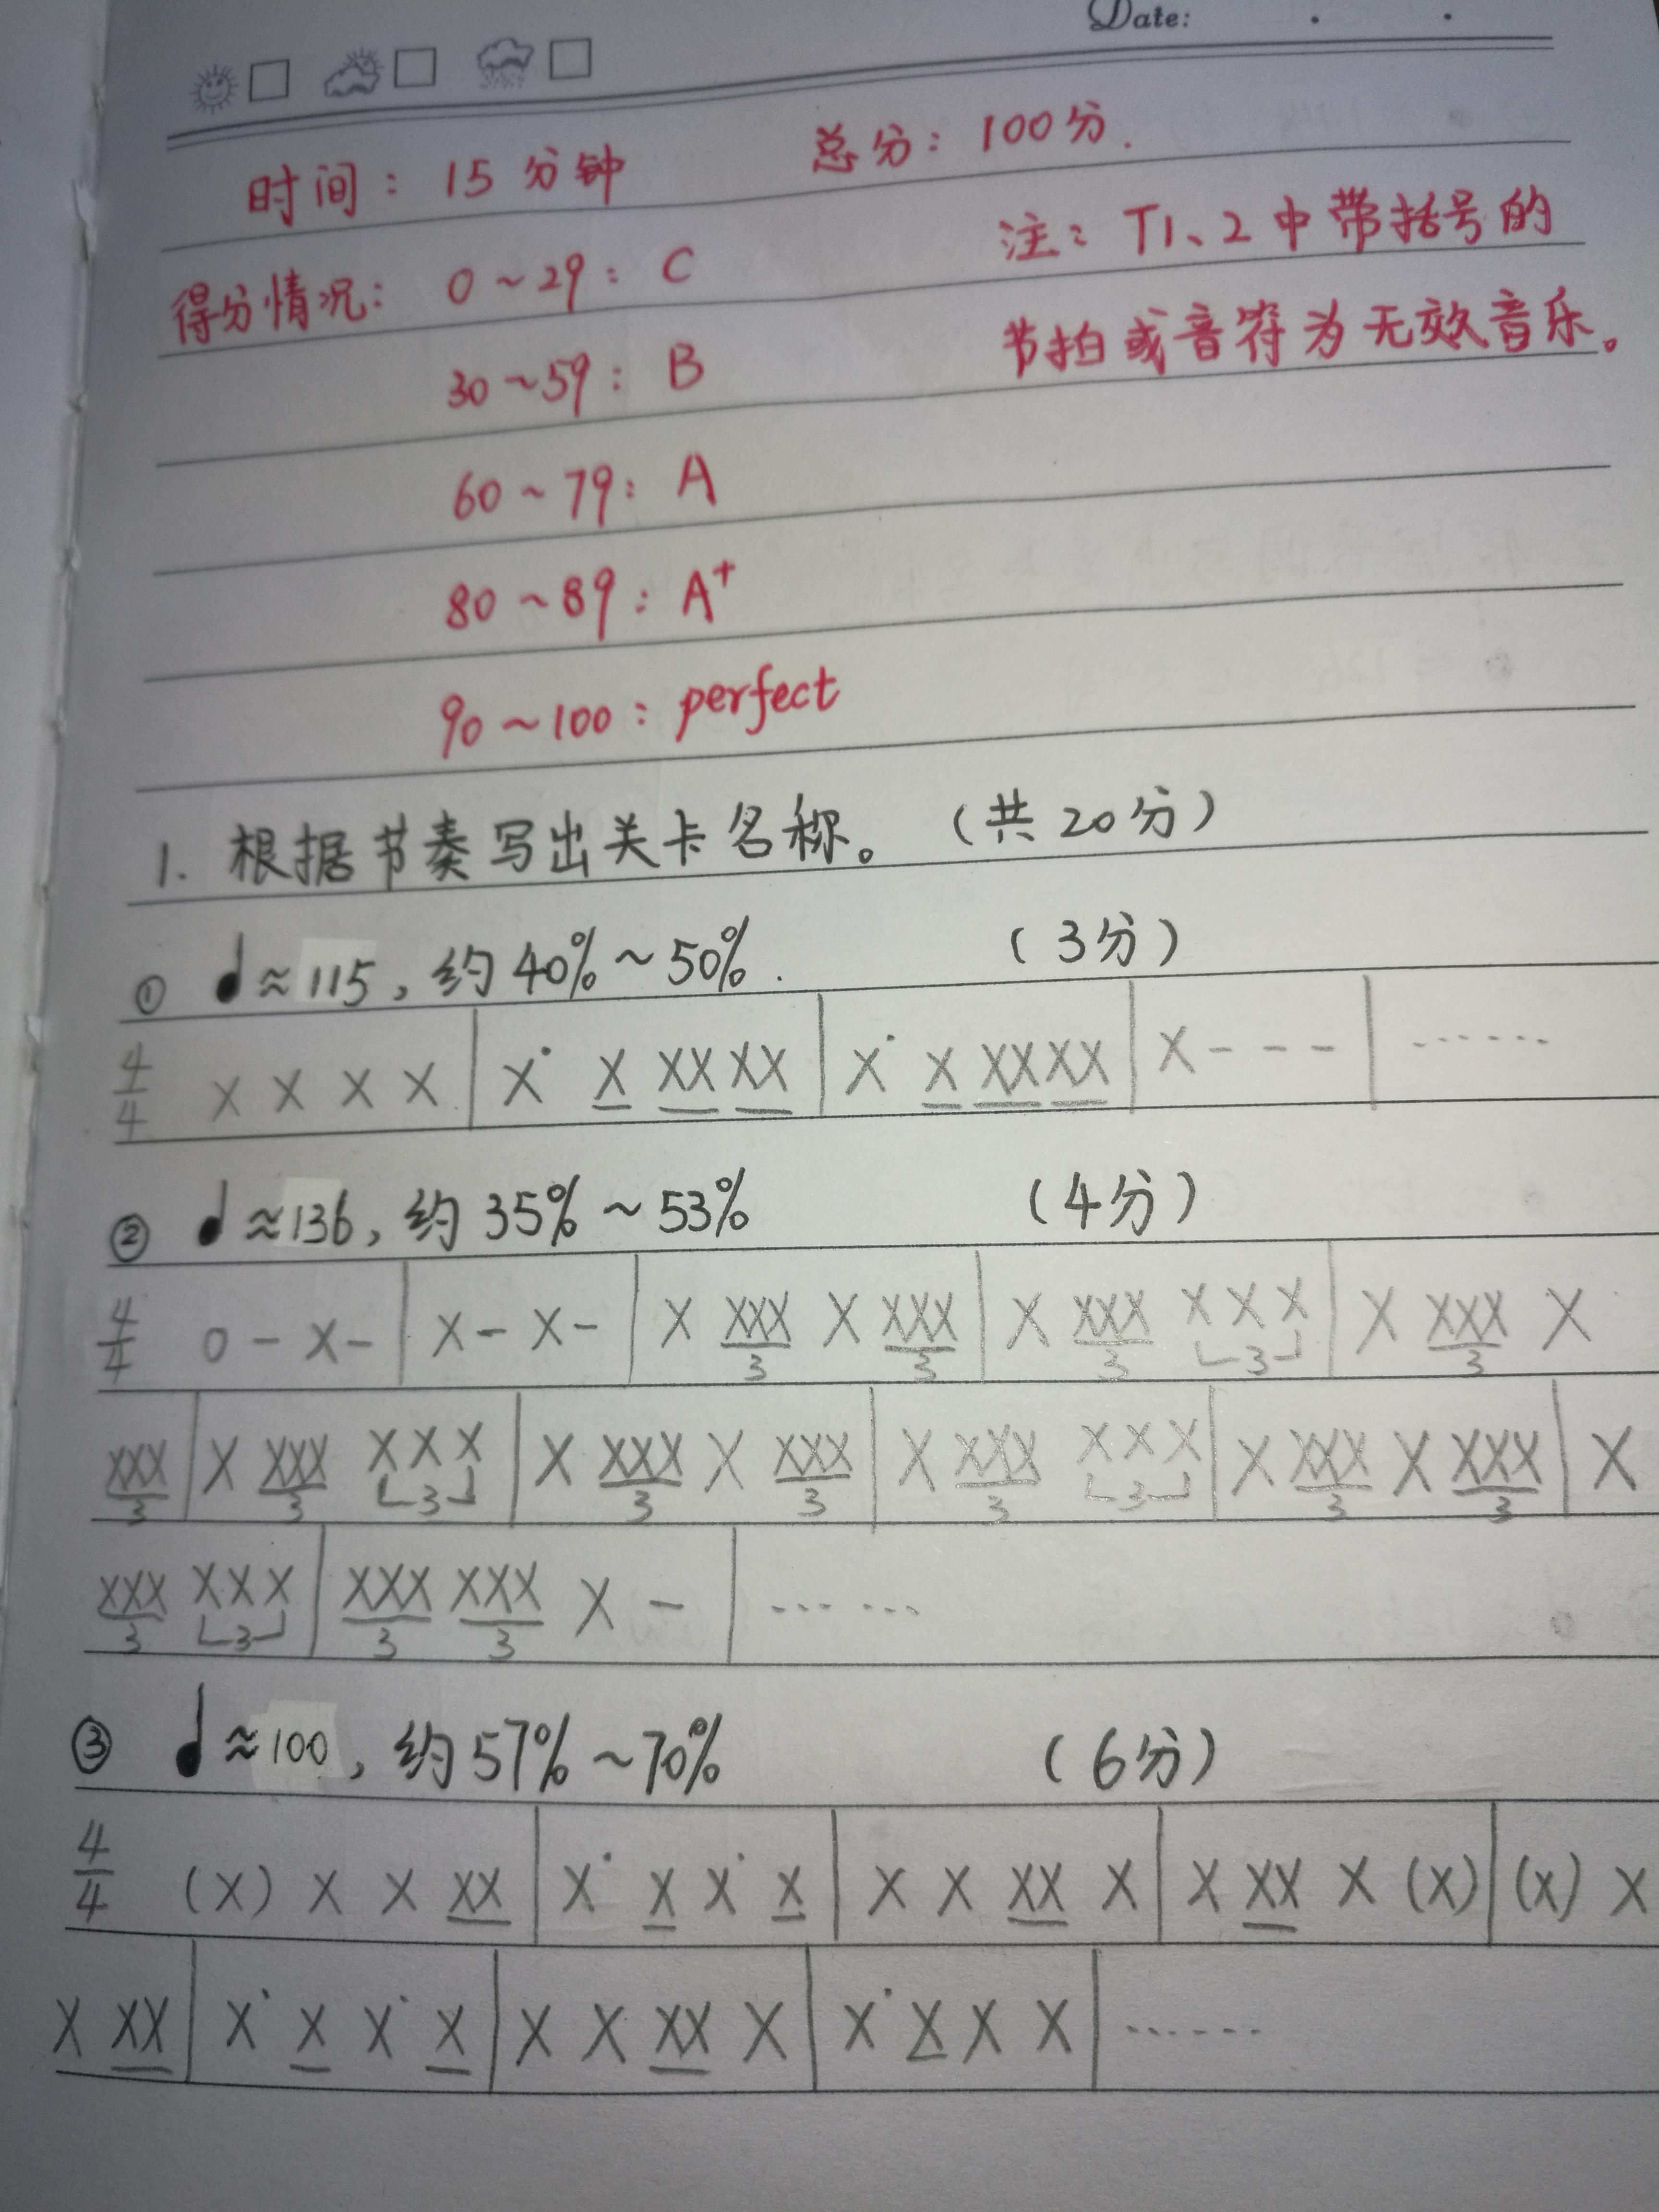 Date:
时间：15分钟 总分：100分.
得分情况：0～29：C 注：T1、2中带括号的
30～59：B 节拍或音符为无效音乐。
60～79：A
80～89：A⁺
90～100：perfect
1. 根据节奏写出关卡名称。（共20分）
① ♩≈115，约40%～50%. （3分）
4/4 X X X X | X· X XX XX | X· X XX XX | X - - - | ……
② ♩≈136，约35%～53% （4分）
4/4 0 - X - | X - X - | X XXX 3 X XXX 3 | X XXX 3 X X X 3 | X XXX 3 X
XXX 3 | X XXX 3 X X X 3 | X XXX 3 X XXX 3 | X XXX 3 X X X 3 | X XXX 3 X XXX 3 | X
XXX 3 X X X 3 | XXX 3 XXX 3 X - | ……
③ ♩≈100，约57%～70% （6分）
4/4 (X) X X XX | X· X X· X | X X XX X | X XX X (X) | (X) X
X XX | X· X X· X | X X XX X | X· X X X | ……